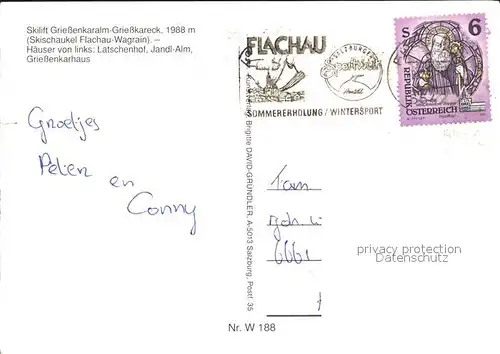 Skilift Grießenkaralm-Grießkareck, 1988 m
(Skischaukel Flachau-Wagrain). –
Häuser von links: Latschenhof, Jandl-Alm,
Grießenkarhaus
FLACHAU
SALZBURGER
Sportwelt
SOMMERERHOLUNG / WINTERSPORT
S 6
REPUBLIK
ÖSTERREICH
Groetjes
Peter en
Conny
Brigitte DAVID-GRÜNDLER, A-5013 Salzburg, Postf. 35
privacy protection
Datenschutz
Nr. W 188